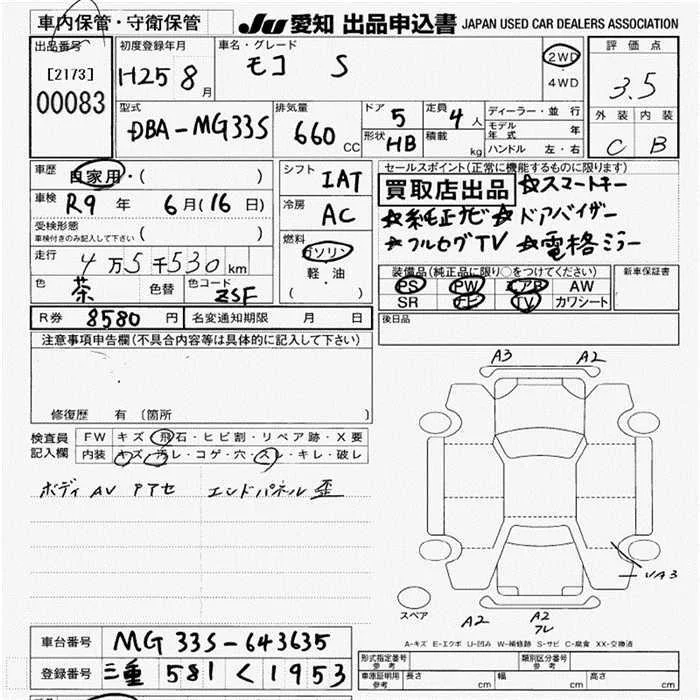 車内保管・守衛保管
JU 愛知 出品申込書 JAPAN USED CAR DEALERS ASSOCIATION
出品番号 [2173] 00083
初度登録年月 H25 8月
車名・グレード モコ S
2WD・4WD
評価点 3.5
外装 C 内装 B
型式 DBA-MG33S
排気量 660 CC
ドア 5
形状 HB
定員 4人
積載 kg
ディーラー・並行
モデル年式 年
ハンドル 左・右
車歴 自家用・( )
車検 R9年 6月(16日)
受検形態 車検付きのみ記入して下さい ( )
走行 4万5千530km
色 茶 色替 色コード ZSF
R券 8580円 名変通知期限 月 日
シフト IAT
冷房 AC
燃料 ガソリン 軽・油 ( )
セールスポイント(正常に機能するものに限ります)
買取店出品 ☆スマートキー
☆純正ナビ ☆ドアバイザー
☆フルセグTV ☆電格ミラー
装備品(純正品に限り○をつけてください) 新車保証書
PS PW エアB AW
SR ナビ TV カワシート
後日品
注意事項申告欄(不具合内容等は具体的に記入して下さい)
修復歴 有 〔箇所 〕
検査員記入欄
FW キズ・飛石・ヒビ割・リペア跡・X要
内装 キズ・汚レ・コゲ・穴・スレ・キレ・破レ
ボディ AV アアセ エンドパネル歪
A3 A2
UA3
スペア
A2 A2 フレ
A-キズ E-エクボ U-凹み W-補修跡 S-サビ C-腐食 XX-交換済
車台番号 MG33S-643635
登録番号 三重 581 く 1953
形式指定番号 参考 類別区分番号 参考
車庫証明用 参考 長さ cm 幅 cm 高さ cm